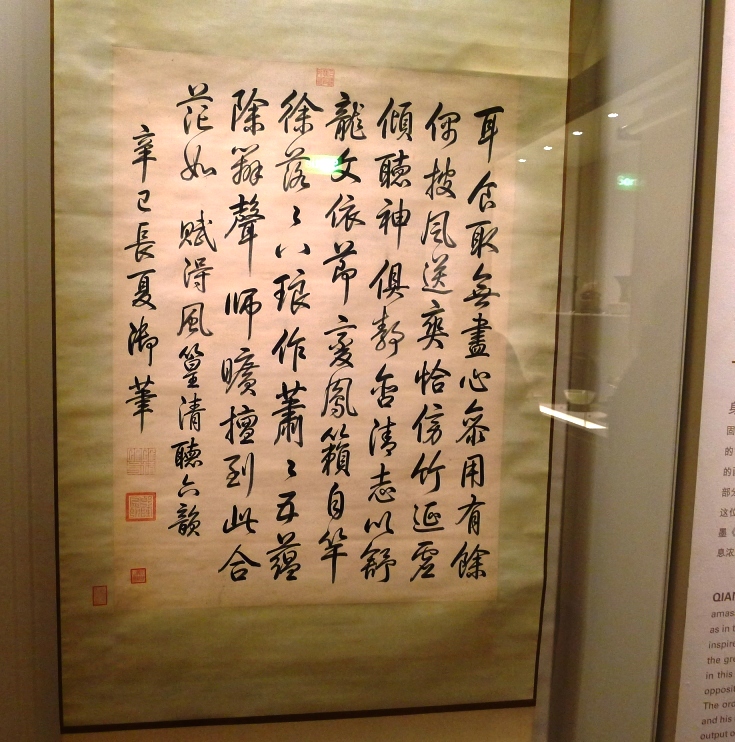 耳食取無盡心參用有餘
偶披風送爽恰傍竹延虛
傾聽神俱靜含清志以舒
龍文依節變鳳籟自竿
徐落〻八琅作蕭〻五蘊
除辨聲師曠擅到此合
茫如 賦得風篁清聽六韻
辛巳長夏御筆
固
的
的
部分
這位
墨
息濃
QIAN
amas
as in t
inspire
the gre
in this
opposit
The oro
and his
output o